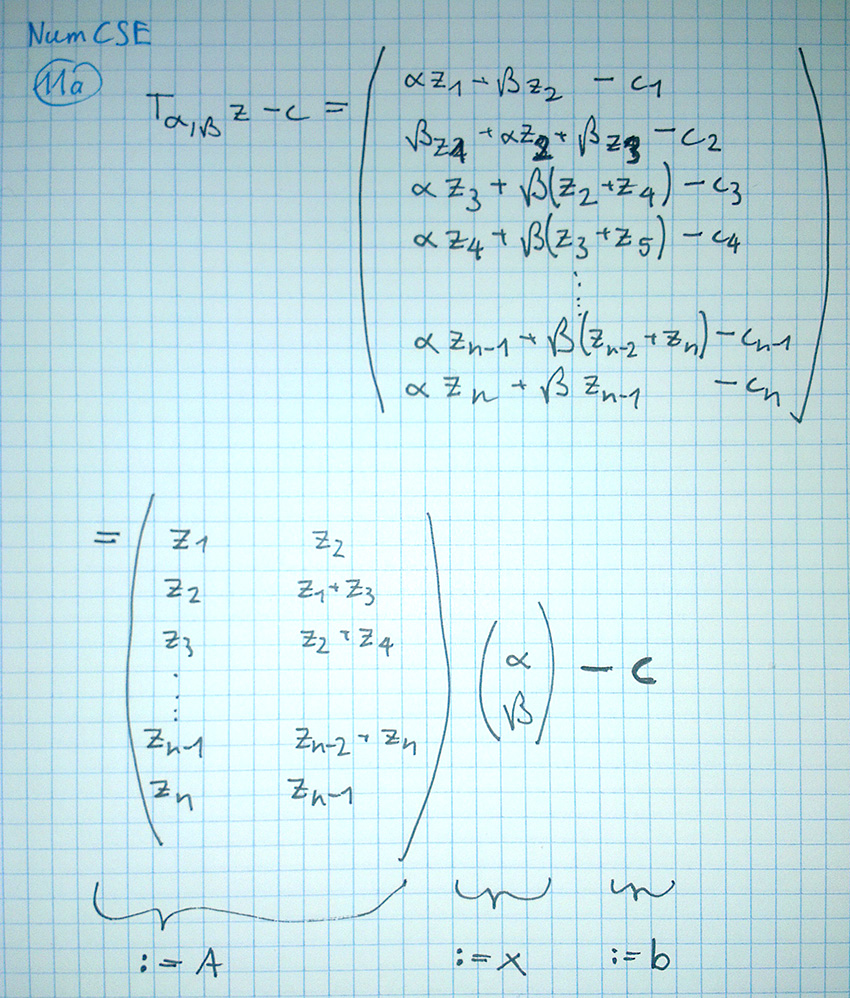 NumCSE
11a
T_{α,β} z - c =
αz_1 + βz_2 - c_1
βz_1 + αz_2 + βz_3 - c_2
αz_3 + β(z_2 + z_4) - c_3
αz_4 + β(z_3 + z_5) - c_4
⋮
αz_{n-1} + β(z_{n-2} + z_n) - c_{n-1}
αz_n + βz_{n-1} - c_n
=
z_1 z_2
z_2 z_1 + z_3
z_3 z_2 + z_4
⋮
z_{n-1} z_{n-2} + z_n
z_n z_{n-1}
(α
β) - c
:= A := x := b